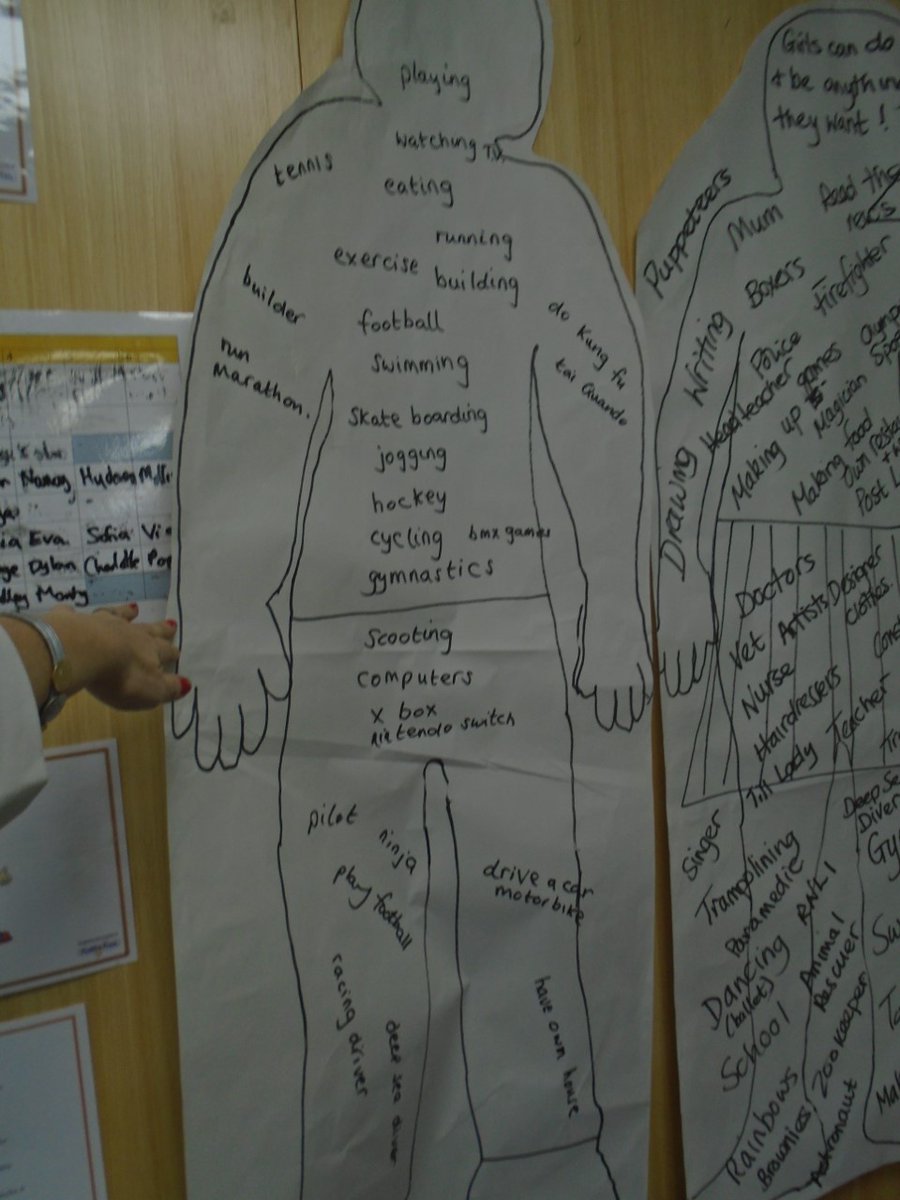 playing
watching TV
eating
tennis
running
exercise
building
builder
football
do Kung fu
tai Quando
run
Marathon.
swimming
skate boarding
jogging
hockey
cycling bmx games
gymnastics
scooting
computers
x box
nintendo switch
pilot
ninja
play football
drive a car
motorbike
racing driver
deep sea diver
have own house
Girls can do
+ be anything
they want !
Puppeteers
Mum
Read the
news
Writing
Boxers
Firefighter
Police
Headteacher
Making up games
Magician
Drawing
Making food
own
Post
Doctors
Vet
Artists
Designer
clothes
Nurse
Hairdressers
Till Lady
Teacher
Singer
Deep Se
Diver
Trampolining
Paramedic
RNLI
Dancing
(ballet)
Animal
Rescuer
School
Zoo keeper
Rainbows
Brownies
Astronaut
Nancy Hudson
Eva. Sofia
Dylan
Monty